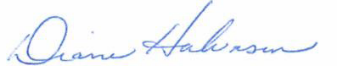 Diane Halverson